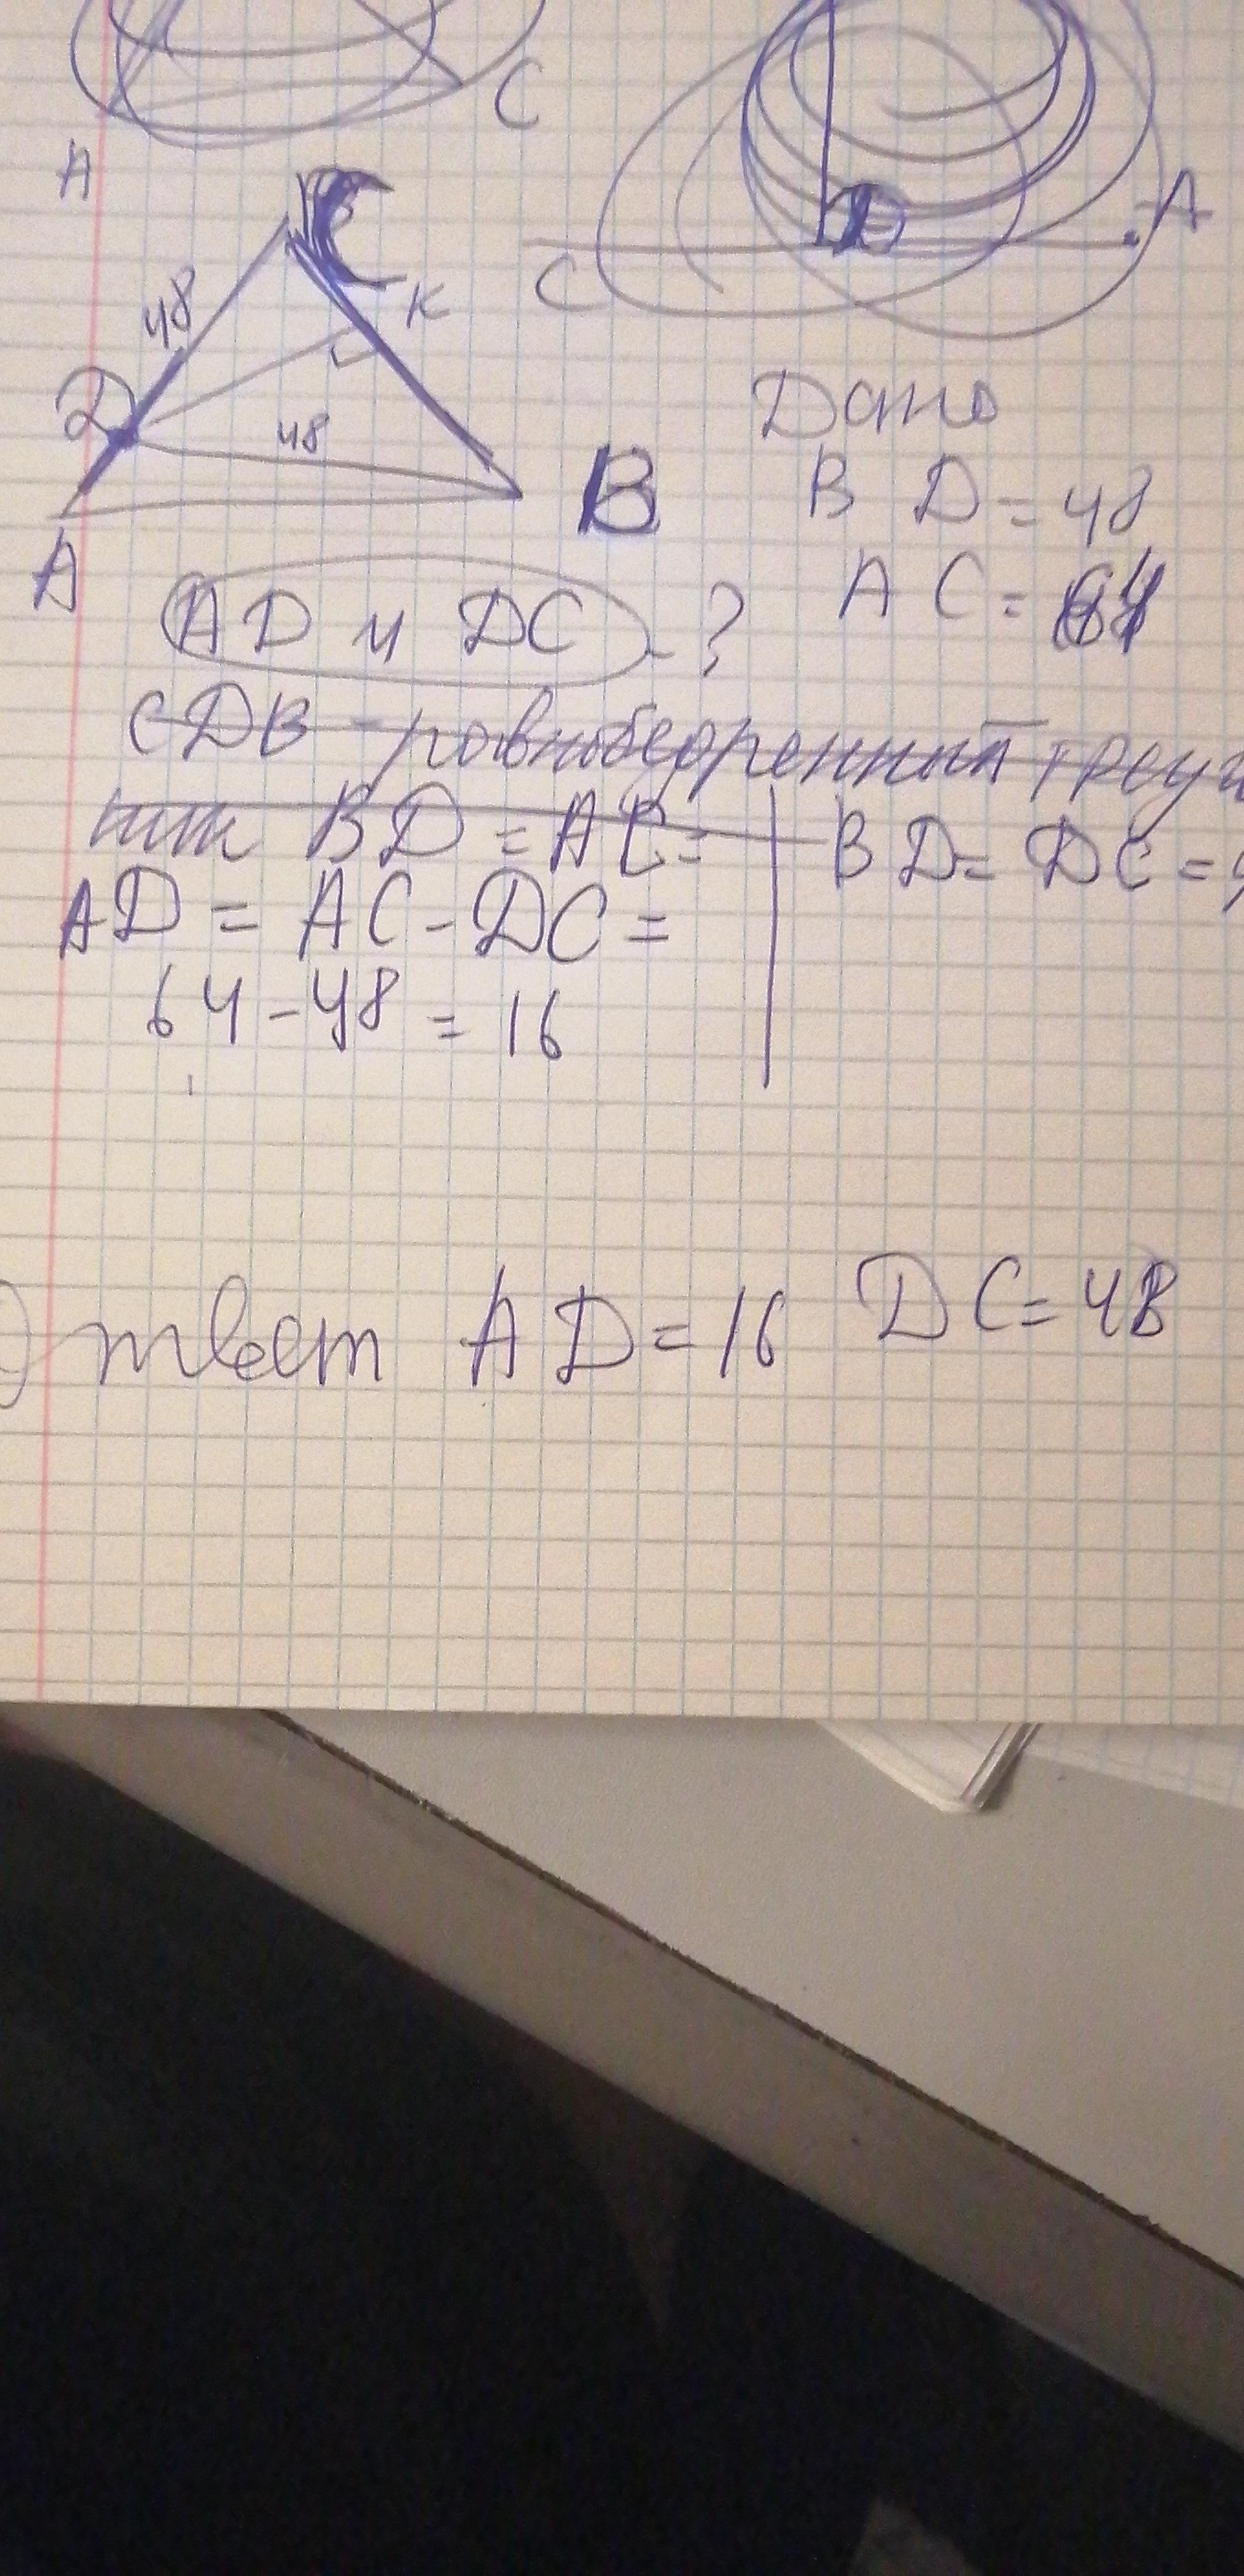 C
A
A
C
K
48
D
48
B
A
Дано
B D = 48
A C = 64
AD и DC - ?
CDB - равнобедренный
BD = AC =
BD = DC =
AD = AC - DC =
64 - 48 = 16
Ответ AD = 16 DC = 48